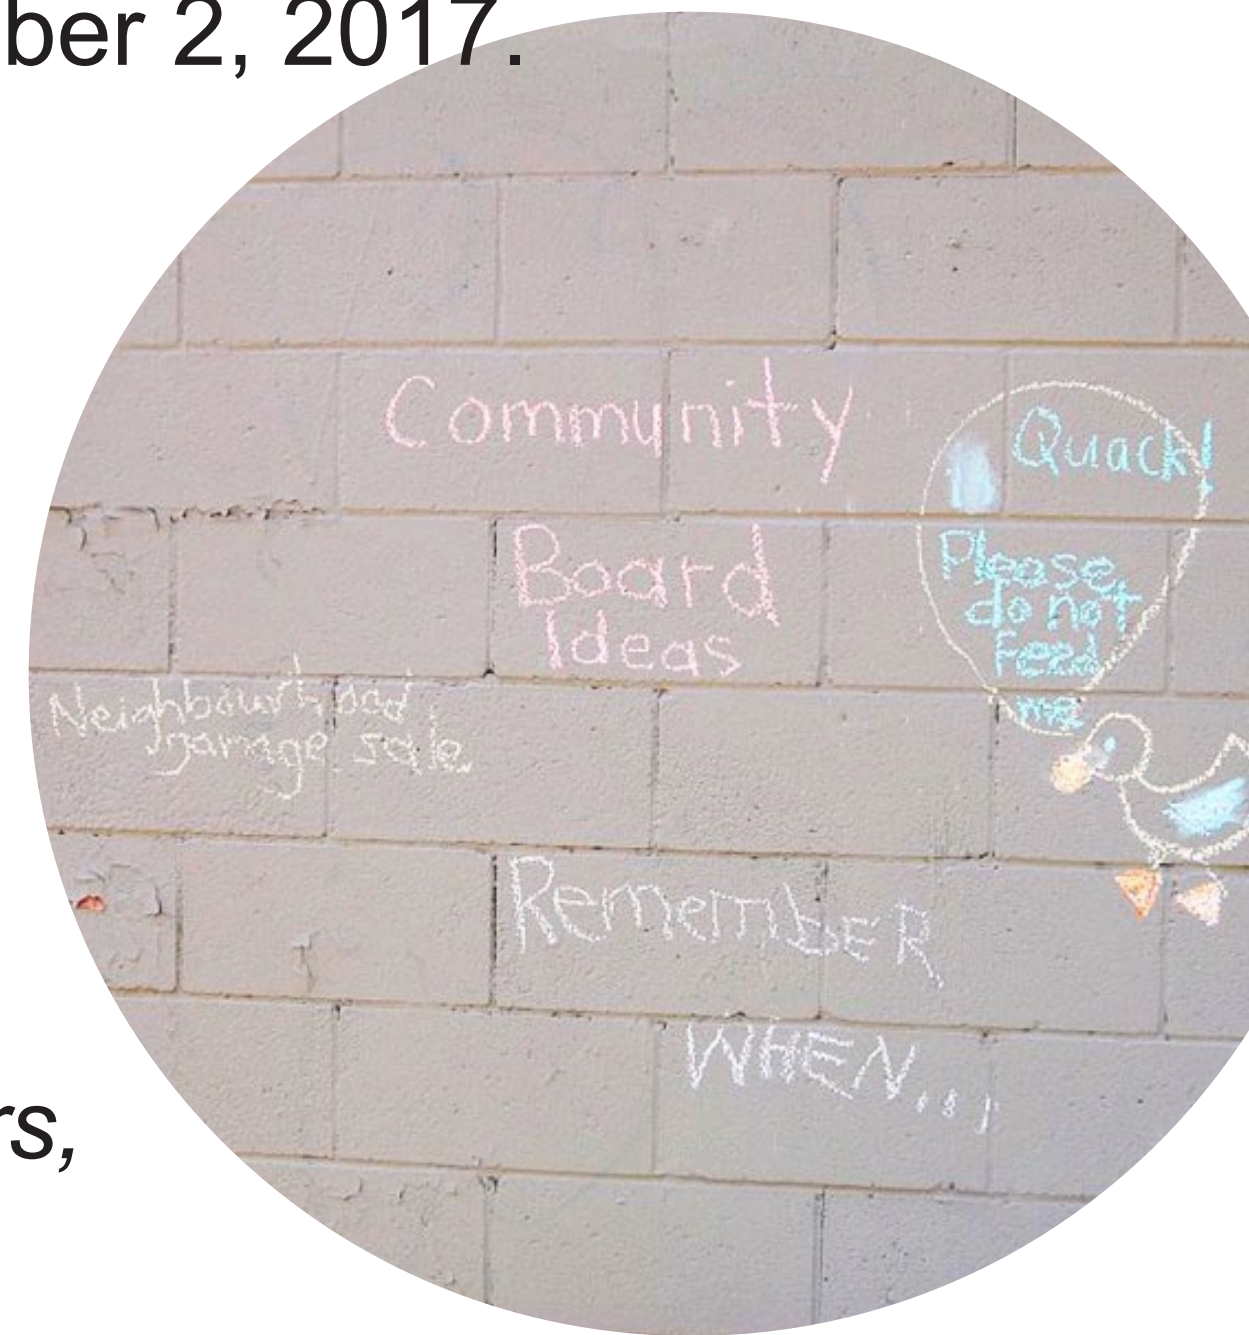 ber 2, 2017.
Community
Board
Ideas
Quack!
Please
do not
feed
me
Neighbourhood
garage sale
RemembER
WHEN...
rs,